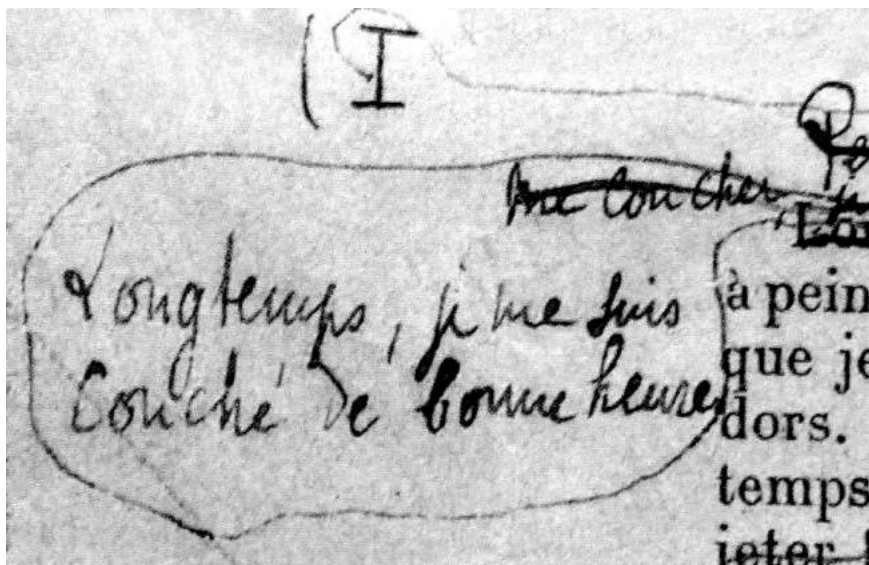 I
me coucher,
Longtemps, je me suis
couché de bonne heure
à pein
que je
dors.
temps
jeter